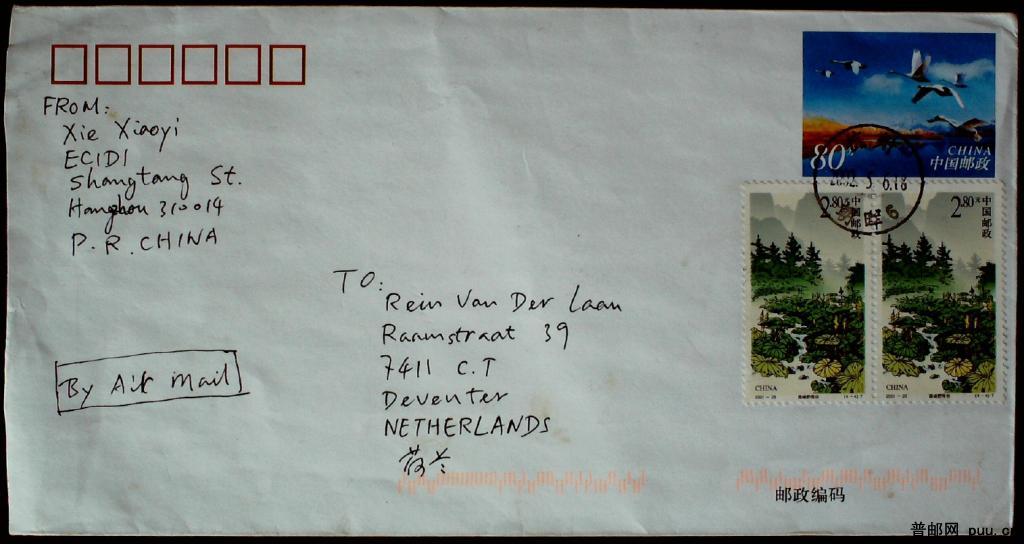 FROM:
Xie Xiaoyi
ECIDI
Shangtang St.
Hangzhou 310014
P.R. CHINA
TO:
Rein Van Der Laan
Raamstraat 39
7411 C.T
Deventer
NETHERLANDS
荷兰
By Air Mail
80分
CHINA
中国邮政
2002.5.6.18
2.80元
中国邮政
CHINA
2001-25
2.80元
中国邮政
CHINA
2001-25
邮政编码
普邮网 puu.c